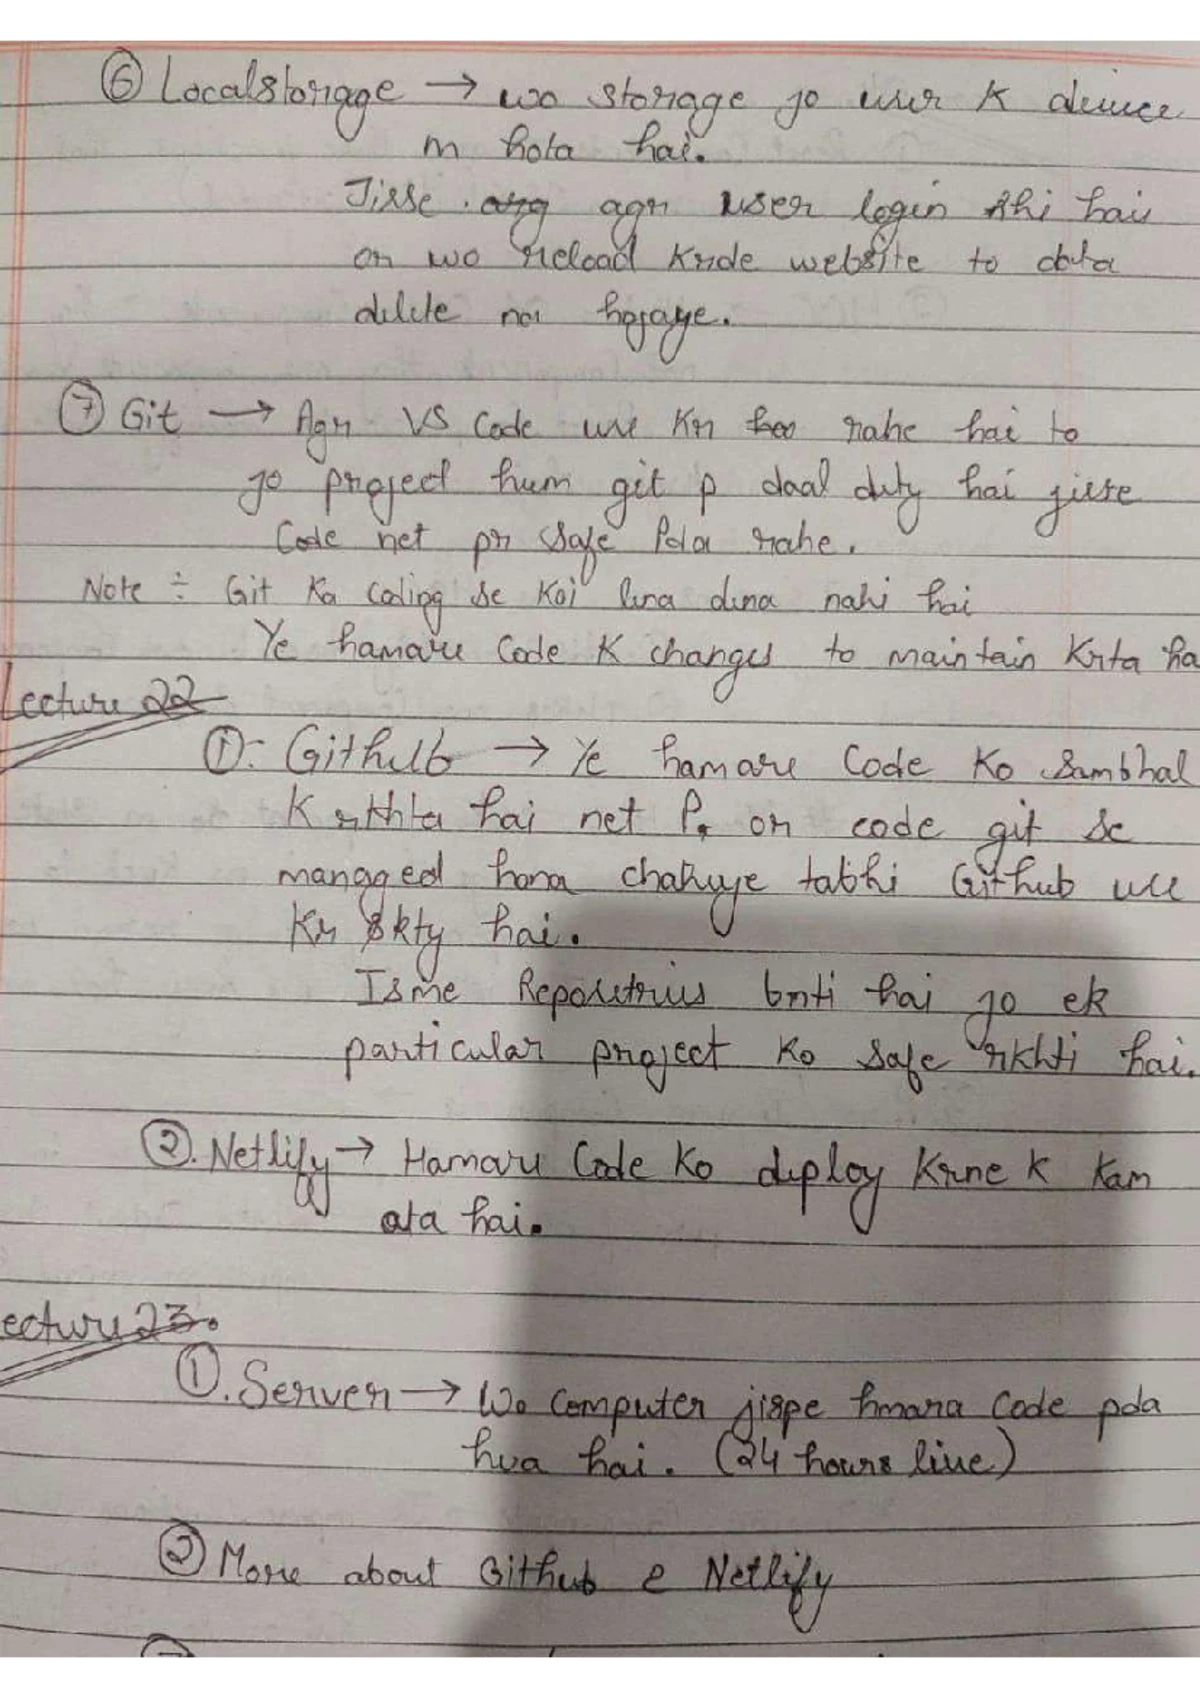 ⑥ Localstorage → wo storage jo user k device
m hota hai.
Jisse agr user login rhi hai
or wo reload krde website to data
delete nai hojaye.
⑦ Git → Agr VS Code use kr rahe hai to
jo project hum git p daal dety hai jisse
Code net pr safe Pda rahe.
Note ÷ Git Ka Coding se Koi lena dena nahi hai
Ye hamare Code K changes to maintain Krta ha
Lecture 22
①: Githulb → Ye hamare Code Ko Sambhal
K rkhta hai net P. or code git se
managed hona chahiye tabhi Github use
Kr skty hai.
Isme Repositries bnti hai jo ek
particular project Ko safe rkhti hai.
②. Netlify → Hamare Code Ko deploy Krne K Kam
ata hai.
ecture 23.
①. Server → Wo Computer jispe hmara Code pda
hua hai. (24 hours live)
② More about Github & Netlify